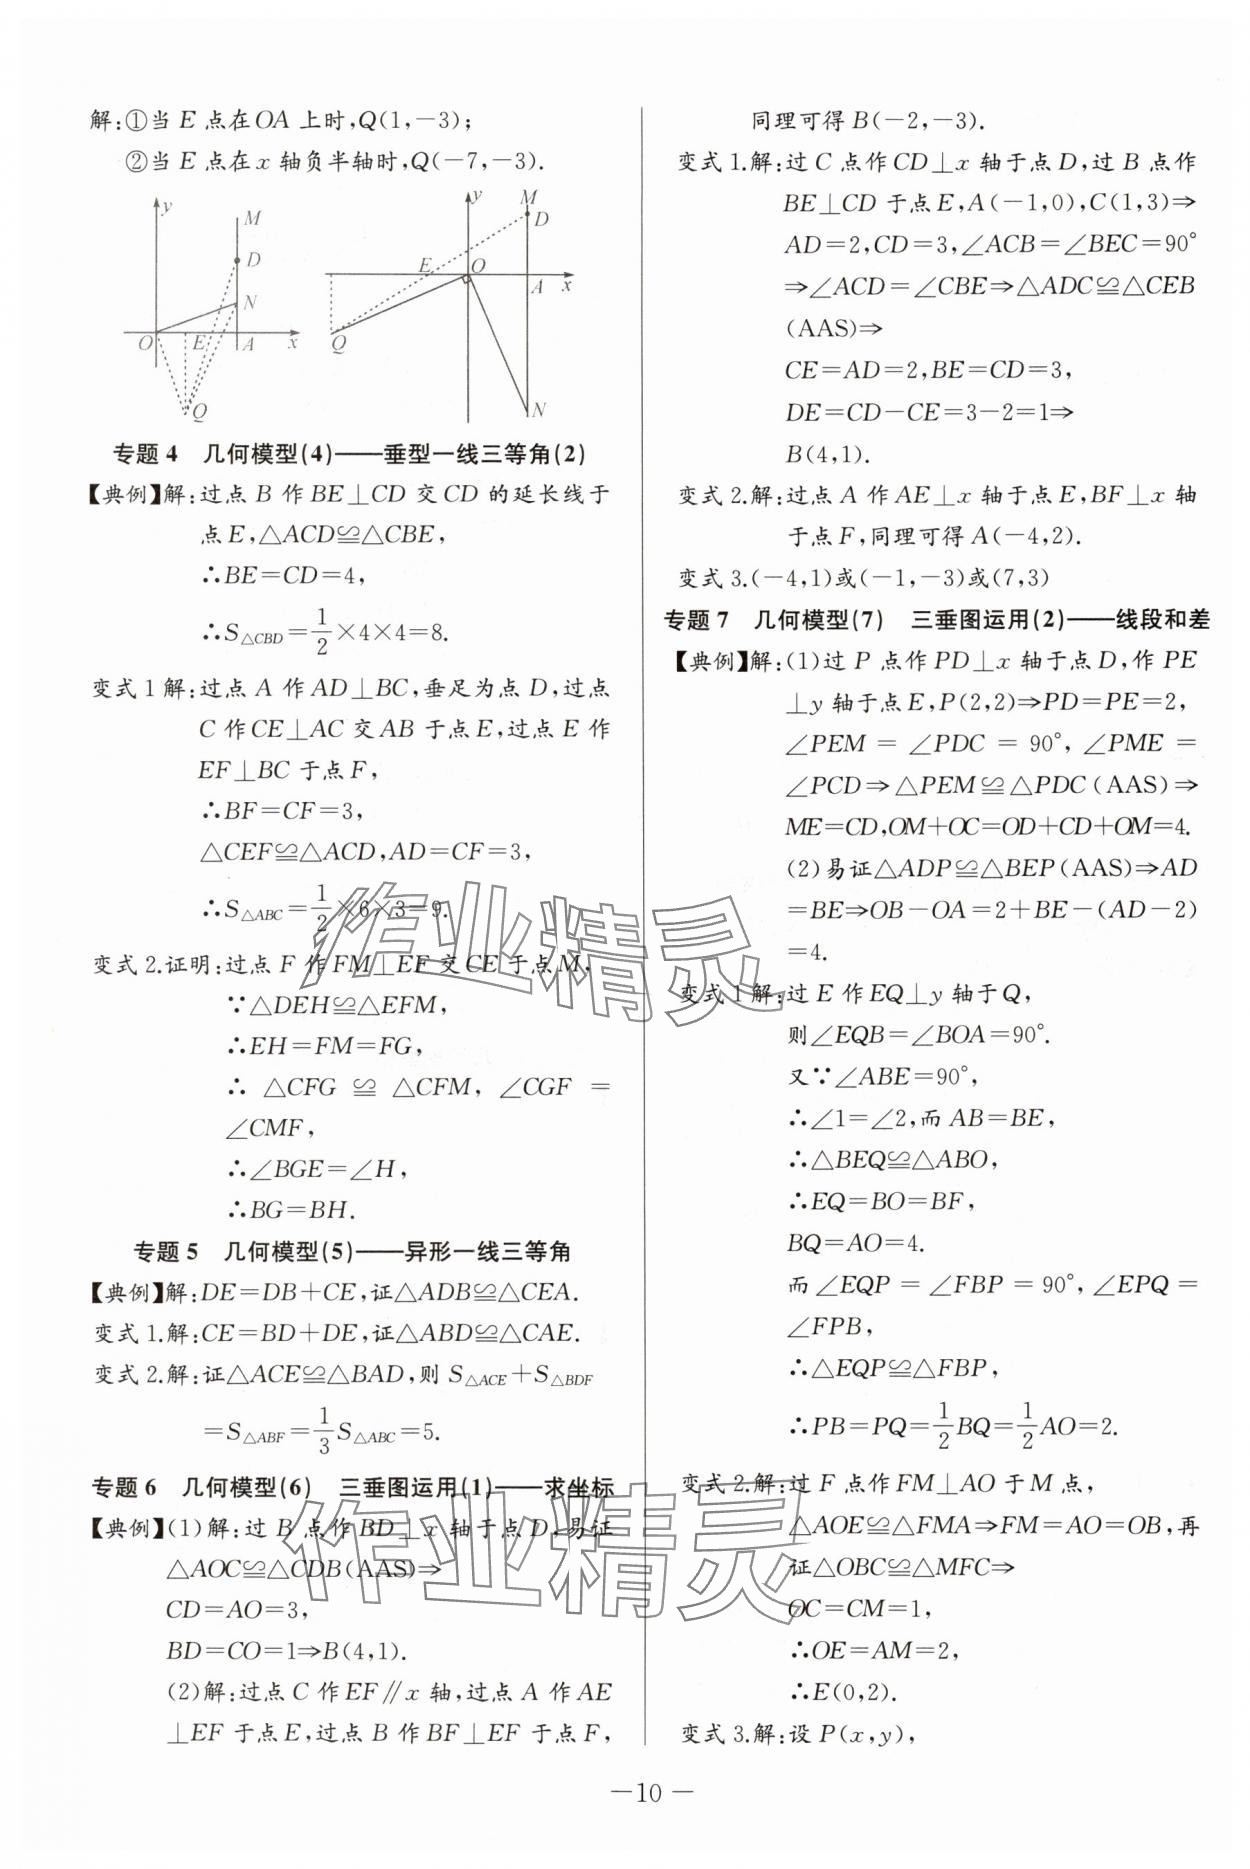 解:①当 E 点在 OA 上时,Q(1,-3);
②当 E 点在 x 轴负半轴时,Q(-7,-3).
y
M
D
N
O
E
A
x
Q
y
M
D
E
O
A
x
Q
N
专题 4 几何模型(4)——垂型一线三等角(2)
【典例】解:过点 B 作 BE⊥CD 交 CD 的延长线于
点 E,△ACD≌△CBE,
∴BE=CD=4,
∴S△CBD=1/2×4×4=8.
变式 1 解:过点 A 作 AD⊥BC,垂足为点 D,过点
C 作 CE⊥AC 交 AB 于点 E,过点 E 作
EF⊥BC 于点 F,
∴BF=CF=3,
△CEF≌△ACD,AD=CF=3,
∴S△ABC=1/2×6×3=9.
变式 2.证明:过点 F 作 FM⊥EF 交 CE 于点 M,
∵△DEH≌△EFM,
∴EH=FM=FG,
∴ △CFG ≌ △CFM, ∠CGF =
∠CMF,
∴∠BGE=∠H,
∴BG=BH.
专题 5 几何模型(5)——异形一线三等角
【典例】解:DE=DB+CE,证△ADB≌△CEA.
变式 1.解:CE=BD+DE,证△ABD≌△CAE.
变式 2.解:证△ACE≌△BAD,则 S△ACE+S△BDF
=S△ABF=1/3S△ABC=5.
专题 6 几何模型(6) 三垂图运用(1)——求坐标
【典例】(1)解:过 B 点作 BD⊥x 轴于点 D,易证
△AOC≌△CDB(AAS)⇒
CD=AO=3,
BD=CO=1⇒B(4,1).
(2)解:过点 C 作 EF∥x 轴,过点 A 作 AE
⊥EF 于点 E,过点 B 作 BF⊥EF 于点 F,
同理可得 B(-2,-3).
变式 1.解:过 C 点作 CD⊥x 轴于点 D,过 B 点作
BE⊥CD 于点 E,A(-1,0),C(1,3)⇒
AD=2,CD=3,∠ACB=∠BEC=90°
⇒∠ACD=∠CBE⇒△ADC≌△CEB
(AAS)⇒
CE=AD=2,BE=CD=3,
DE=CD-CE=3-2=1⇒
B(4,1).
变式 2.解:过点 A 作 AE⊥x 轴于点 E,BF⊥x 轴
于点 F,同理可得 A(-4,2).
变式 3.(-4,1)或(-1,-3)或(7,3)
专题 7 几何模型(7) 三垂图运用(2)——线段和差
【典例】解:(1)过 P 点作 PD⊥x 轴于点 D,作 PE
⊥y 轴于点 E,P(2,2)⇒PD=PE=2,
∠PEM = ∠PDC = 90°, ∠PME =
∠PCD⇒△PEM≌△PDC(AAS)⇒
ME=CD,OM+OC=OD+CD+OM=4.
(2)易证△ADP≌△BEP(AAS)⇒AD
=BE⇒OB-OA=2+BE-(AD-2)
=4.
变式 1 解:过 E 作 EQ⊥y 轴于 Q,
则∠EQB=∠BOA=90°.
又∵∠ABE=90°,
∴∠1=∠2,而 AB=BE,
∴△BEQ≌△ABO,
∴EQ=BO=BF,
BQ=AO=4.
而∠EQP = ∠FBP = 90°, ∠EPQ =
∠FPB,
∴△EQP≌△FBP,
∴PB=PQ=1/2BQ=1/2AO=2.
变式 2.解:过 F 点作 FM⊥AO 于 M 点,
△AOE≌△FMA⇒FM=AO=OB,再
证△OBC≌△MFC⇒
OC=CM=1,
∴OE=AM=2,
∴E(0,2).
变式 3.解:设 P(x,y),
作业精灵
作业精灵
—10—